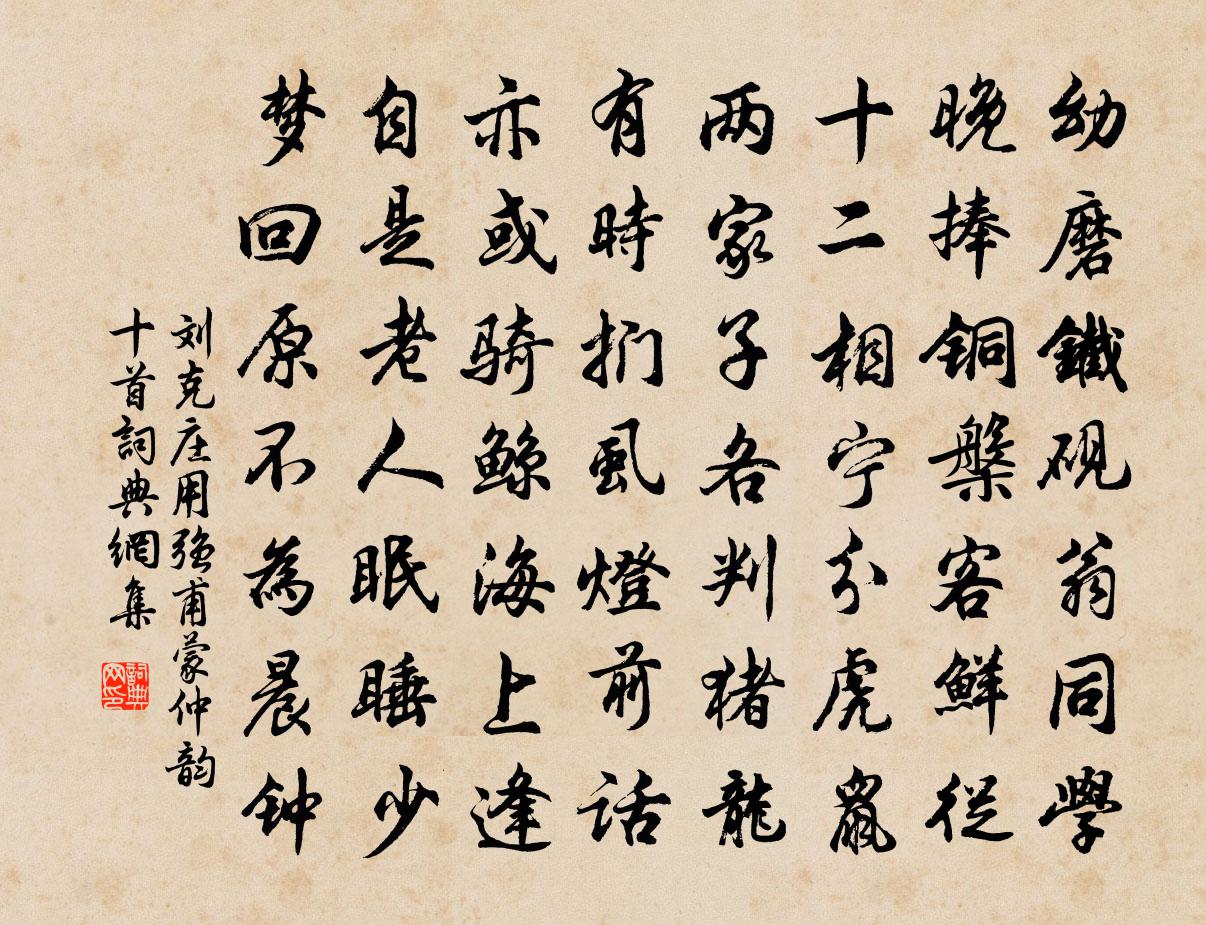 幼磨鐵硯翁同學
晚捧铜槃客鲜從
十二相宁分虎鼠
两家子各判猪龍
有時捫虱燈前話
亦或骑鲸海上逢
自是老人眠睡少
梦回原不為晨钟
刘克庄用强甫蒙仲韵
十首詞典網集
詞典
网印